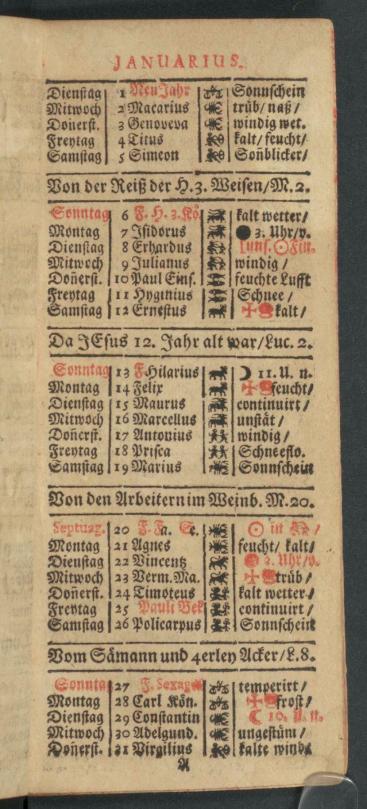 JANUARIUS.
Dienstag 1 Neu Jahr Sonnschein
Mitwoch 2 Macarius trüb/ naß/
Don̄erst. 3 Genoveva windig wet.
Freytag 4 Titus kalt/ feucht/
Samstag 5 Simeon Son̄blicker/
Von der Reiß der H. 3. Weisen/M. 2.
Sonntag 6 F. H. 3. Kö. kalt wetter/
Montag 7 Isidorus 3. Uhr/v.
Dienstag 8 Erhardus
Mitwoch 9 Julianus windig/
Don̄erst. 10 Paul Eins. feuchte Lufft
Freytag 11 Hyginius Schnee/
Samstag 12 Ernestus kalt/
Da JEsus 12. Jahr alt war/Luc. 2.
Sonntag 13 F. Hilarius 11. U. n.
Montag 14 Felix feucht/
Dienstag 15 Maurus continuirt/
Mitwoch 16 Marcellus unstät/
Don̄erst. 17 Antonius windig/
Freytag 18 Prisca Schneeflo.
Samstag 19 Marius Sonnschein
Von den Arbeitern im Weinb. M. 20.
Septuag. 20 in
Montag 21 Agnes feucht/ kalt/
Dienstag 22 Vincentz 2. Uhr/v.
Mitwoch 23 Verm. Ma. trüb/
Don̄erst. 24 Timoteus kalt wetter/
Freytag 25 Pauli Bek continuirt/
Samstag 26 Policarpus Sonnschein
Vom Sämann und 4erley Acker/L. 8.
Sonntag 27 F. Sexag. temperirt/
Montag 28 Carl Kön. frost/
Dienstag 29 Constantin 10. U. n.
Mitwoch 30 Adelgund. ungestüm/
Don̄erst. 31 Virgilius kalte wind
A